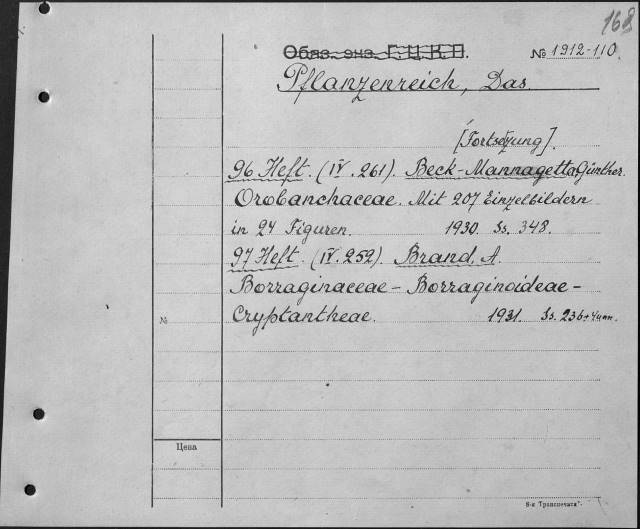 168
Обяз. экз. Г.Ц.К.П. № 1912-110.
Pflanzenreich, Das.
[Fortsetzung].
96 Heft. (IV. 261). Beck-Mannagetta Günther.
Orobanchaceae. Mit 207 Einzelbildern
in 24 Figuren. 1930. Ss. 348.
97 Heft. (IV. 252). Brand, A.
Borraginaceae - Borraginoideae -
Cryptantheae. 1931. Ss. 236+4 нн.
№
Цена